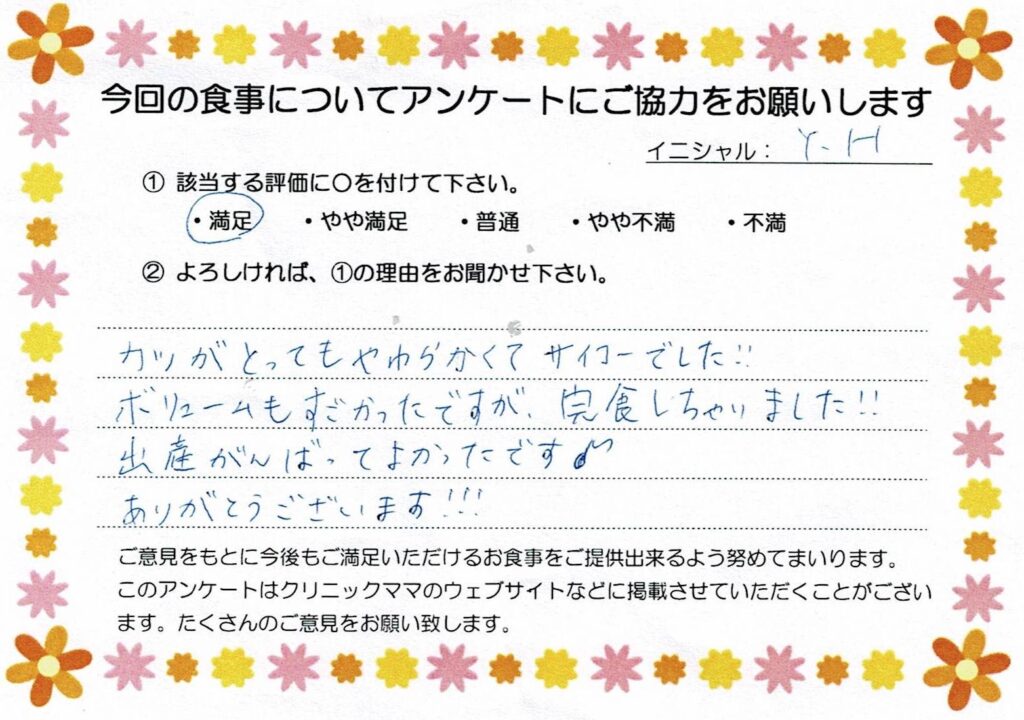 今回の食事についてアンケートにご協力をお願いします
イニシャル： Y.H
① 該当する評価に○を付けて下さい。
・満足 ・やや満足 ・普通 ・やや不満 ・不満
② よろしければ、①の理由をお聞かせ下さい。
カツがとってもやわらかくてサイコーでした!!
ボリュームもすごかったですが、完食しちゃいました!!
出産がんばってよかったです♪
ありがとうございます!!!
ご意見をもとに今後もご満足いただけるお食事をご提供出来るよう努めてまいります。
このアンケートはクリニックママのウェブサイトなどに掲載させていただくことがござい
ます。たくさんのご意見をお願い致します。